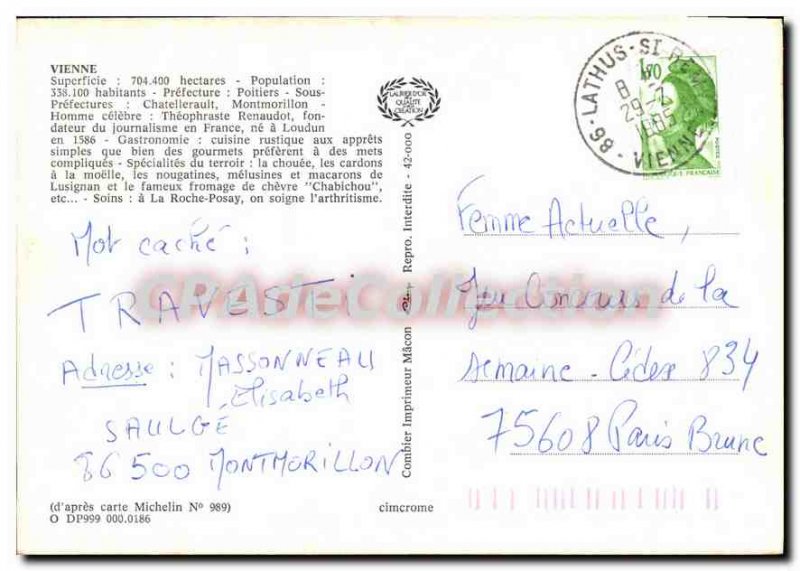 VIENNE
Superficie : 704.400 hectares - Population :
338.100 habitants - Préfecture : Poitiers - Sous-
Préfectures : Chatellerault, Montmorillon -
Homme célèbre : Théophraste Renaudot, fon-
dateur du journalisme en France, né à Loudun
en 1586 - Gastronomie : cuisine rustique aux apprêts
simples que bien des gourmets préfèrent à des mets
compliqués - Spécialités du terroir : la chouée, les cardons
à la moëlle, les nougatines, mélusines et macarons de
Lusignan et le fameux fromage de chèvre "Chabichou",
etc... - Soins : à La Roche-Posay, on soigne l'arthritisme.
Mot caché :
TRAVESTi
Adresse : MASSONNEAU
Elisabeth
SAULGÉ
86 500 MONTMORILLON
(d'après carte Michelin Nº 989)
O DP999 000.0186
cimcrome
LAURIER D'OR
DE LA
QUALITÉ
CRÉATION
Combier Imprimeur Mâcon
Repro. Interdite - 42-000
86 - LATHUS-ST
29-
VIENNE
1,70
FRANÇAISE
Femme Actuelle,
Jeu Concours de la
semaine - Cidex 834
75608 Paris Brune
CPAdeCollection